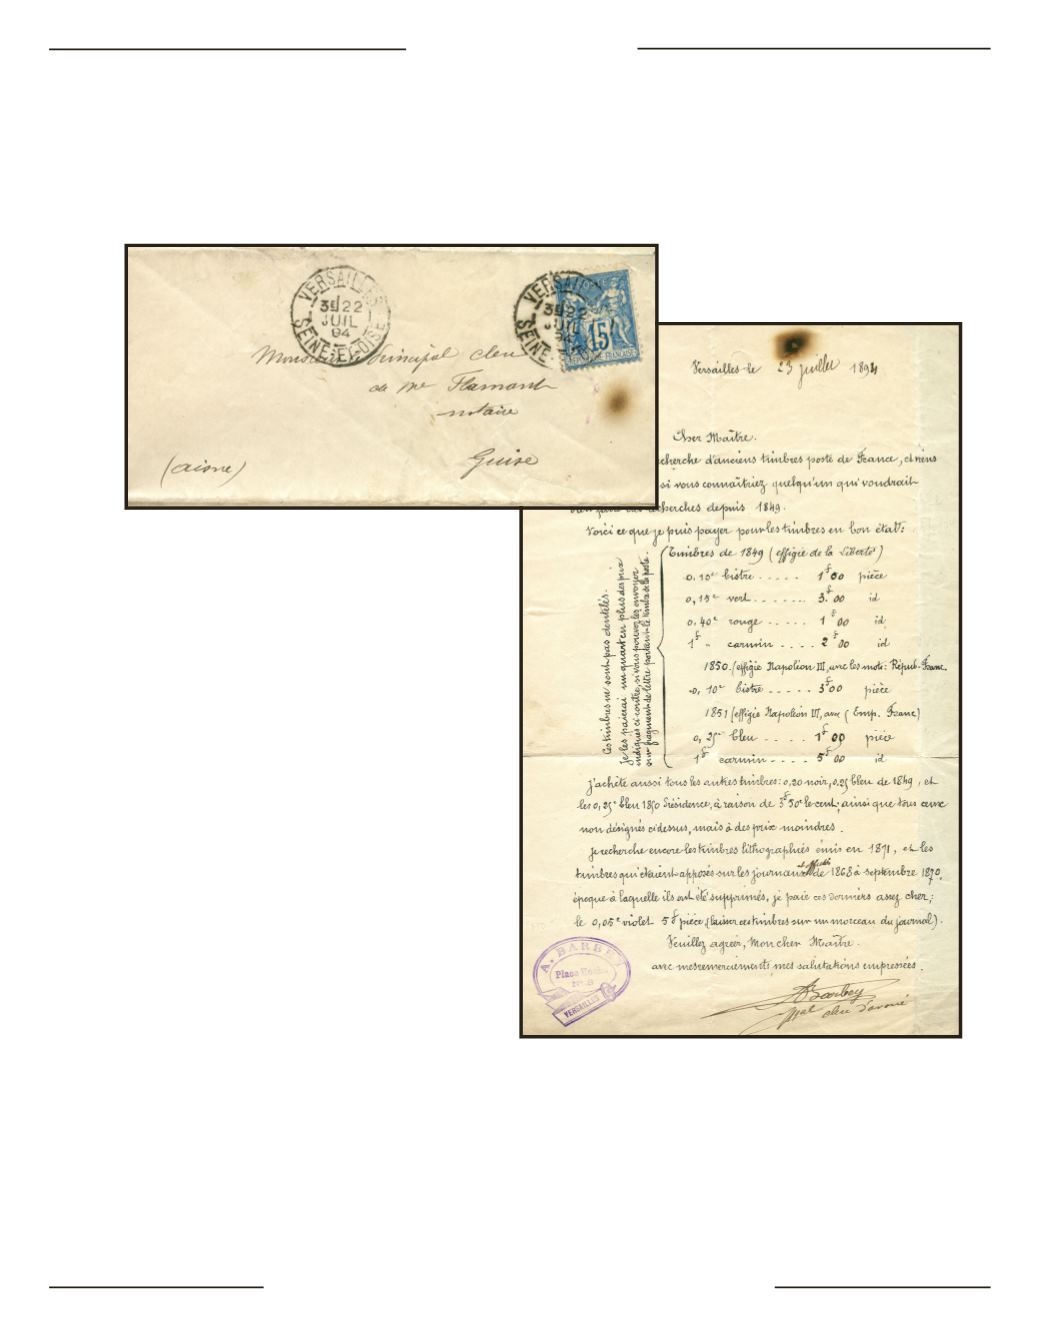 VERSAILLES
3E 22
JUIL
94
SEINE-ET-OISE
VERSAILLES
3E 22
JUIL
94
SEINE
15
REPUBLIQUE FRANÇAISE
Monsieur Principal clerc
de Me Flamant
notaire
Guise
(aisne)
Versailles le 23 juillet 1894
Cher Maître.
recherche d'anciens timbres poste de France, et viens
si vous connaîtriez quelqu'un qui voudrait
bien faire des recherches depuis 1849.
Voici ce que je puis payer pour les timbres en bon état:
Timbres de 1849 (effigie de la Liberté)
0,10c bistre ..... 1f 00 pièce
0,15c vert ....... 3f 00 id
0,40c rouge ..... 1f 00 id
1f " carmin .... 2f 00 id
1850. (effigie Napoléon III, avec les mots: Répub. Franc.
0, 10c bistre ..... 3f 00 pièce
1851 (effigie Napoléon III, avec ( Emp. Franc)
0, 25c bleu ..... 1f 00 pièce
1f carmin .... 5f 00 id
Ces timbres ne sont pas dentelés.
Je les paierai un quart en plus des prix
indiqués ci contre, si vous pouvez les envoyer
sur fragment de lettre portant le timbre de la poste.
J'achète aussi tous les autres timbres: 0,20 noir, 0,25 bleu de 1849, et
les 0,25c bleu 1850 Présidence, à raison de 3f 50c le cent, ainsi que tous ceux
non désignés ci dessus, mais à des prix moindres.
Je recherche encore les timbres lithographiés émis en 1871, et les
timbres qui étaient apposés sur les journaux de 1868 à septembre 1870,
époque à laquelle ils ont été supprimés, je paie ces derniers assez cher;
le 0,05c violet 5f pièce, (laisser ces timbres sur un morceau du journal).
Veuillez agréer, Mon cher Maître.
avec mes remerciements, mes salutations empressées.
A. BARBEY
Place Hoche
No 8
VERSAILLES
A Barbey
ppal clerc d'avoué